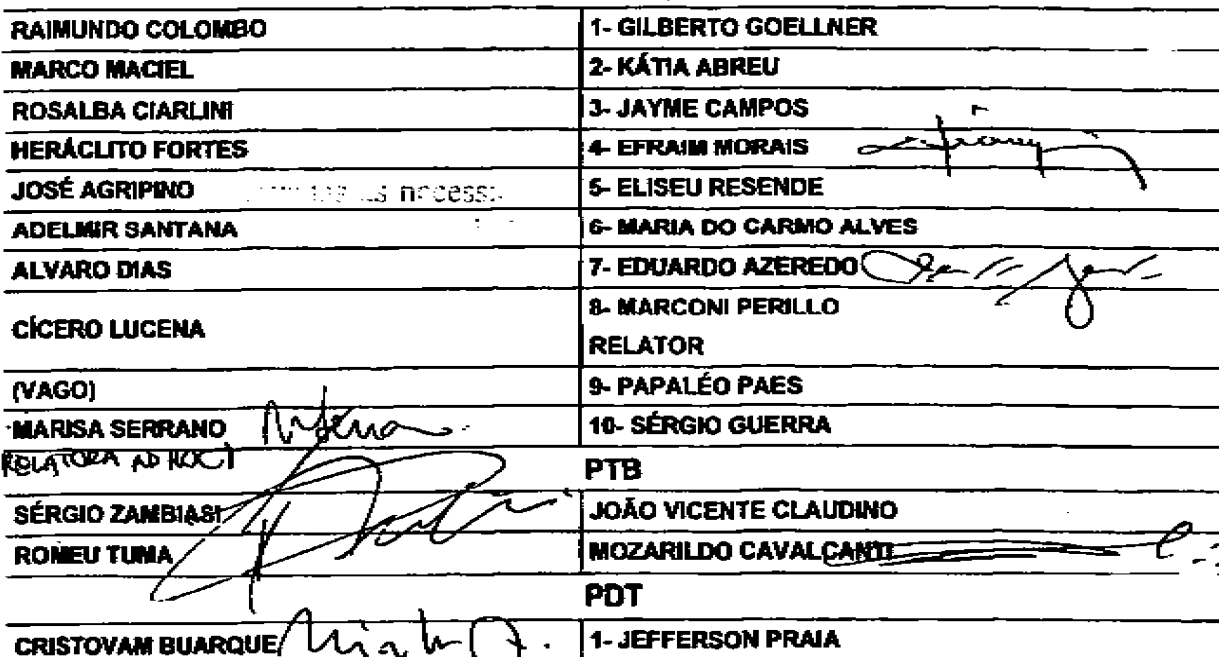 RAIMUNDO COLOMBO 1- GILBERTO GOELLNER
MARCO MACIEL 2- KÁTIA ABREU
ROSALBA CIARLINI 3- JAYME CAMPOS
HERÁCLITO FORTES 4- EFRAIM MORAIS
JOSÉ AGRIPINO 5- ELISEU RESENDE
ADELMIR SANTANA 6- MARIA DO CARMO ALVES
ALVARO DIAS 7- EDUARDO AZEREDO
CÍCERO LUCENA 8- MARCONI PERILLO
RELATOR
(VAGO) 9- PAPALÉO PAES
MARISA SERRANO 10- SÉRGIO GUERRA
RELATORA AD HOC)
PTB
SÉRGIO ZAMBIASI JOÃO VICENTE CLAUDINO
ROMEU TUMA MOZARILDO CAVALCANTI
PDT
CRISTOVAM BUARQUE 1- JEFFERSON PRAIA